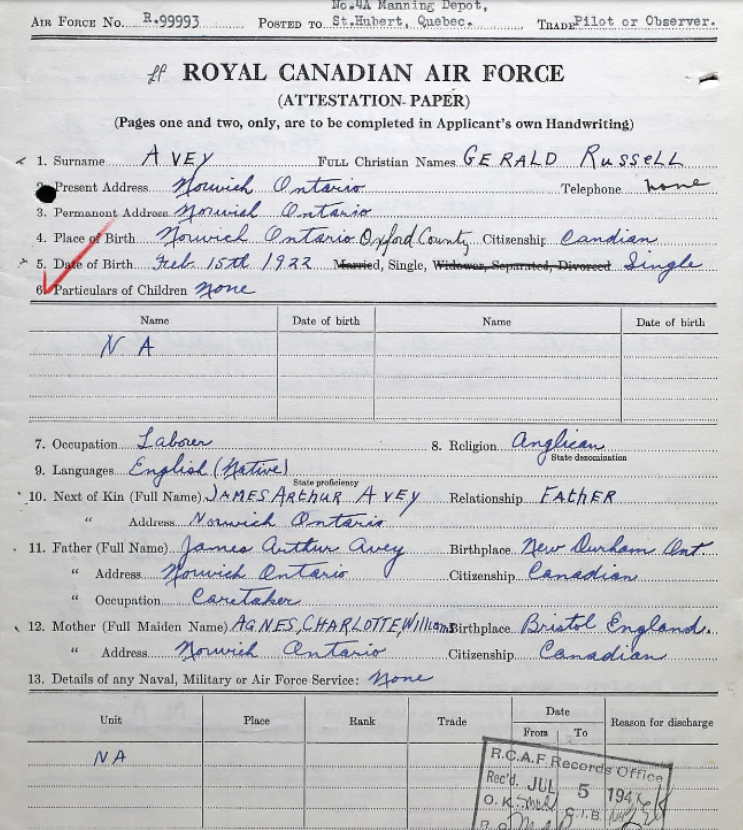 No.4A Manning Depot,
AIR FORCE No. R.99993 POSTED TO St.Hubert, Quebec. TRADE Pilot or Observer.
ROYAL CANADIAN AIR FORCE
(ATTESTATION PAPER)
(Pages one and two, only, are to be completed in Applicant's own Handwriting)
1. Surname AVEY FULL Christian Names GERALD RUSSELL
2. Present Address Norwich Ontario Telephone none
3. Permanent Address Norwich Ontario
4. Place of Birth Norwich Ontario Oxford County Citizenship Candian
5. Date of Birth Feb 15th 1922 Married, Single, Widower, Separated, Divorced Single
6. Particulars of Children None
Name Date of birth Name Date of birth
N A
7. Occupation Laborer 8. Religion Anglican
State denomination
9. Languages English (Native)
State proficiency
10. Next of Kin (Full Name) JAMES ARTHUR AVEY Relationship FATHER
" Address Norwich Ontario
11. Father (Full Name) James Arthur Avey Birthplace New Durham Ont.
" Address Norwich Ontario Citizenship Canadian
" Occupation Caretaker
12. Mother (Full Maiden Name) AGNES, CHARLOTTE, Williams Birthplace Bristol England.
" Address Norwich Ontario Citizenship Canadian
13. Details of any Naval, Military or Air Force Service: None
Unit Place Rank Trade Date Reason for discharge
From To
N A
R.C.A.F. Records Office
Rec'd. JUL 5 194
O.K. S.I.B.